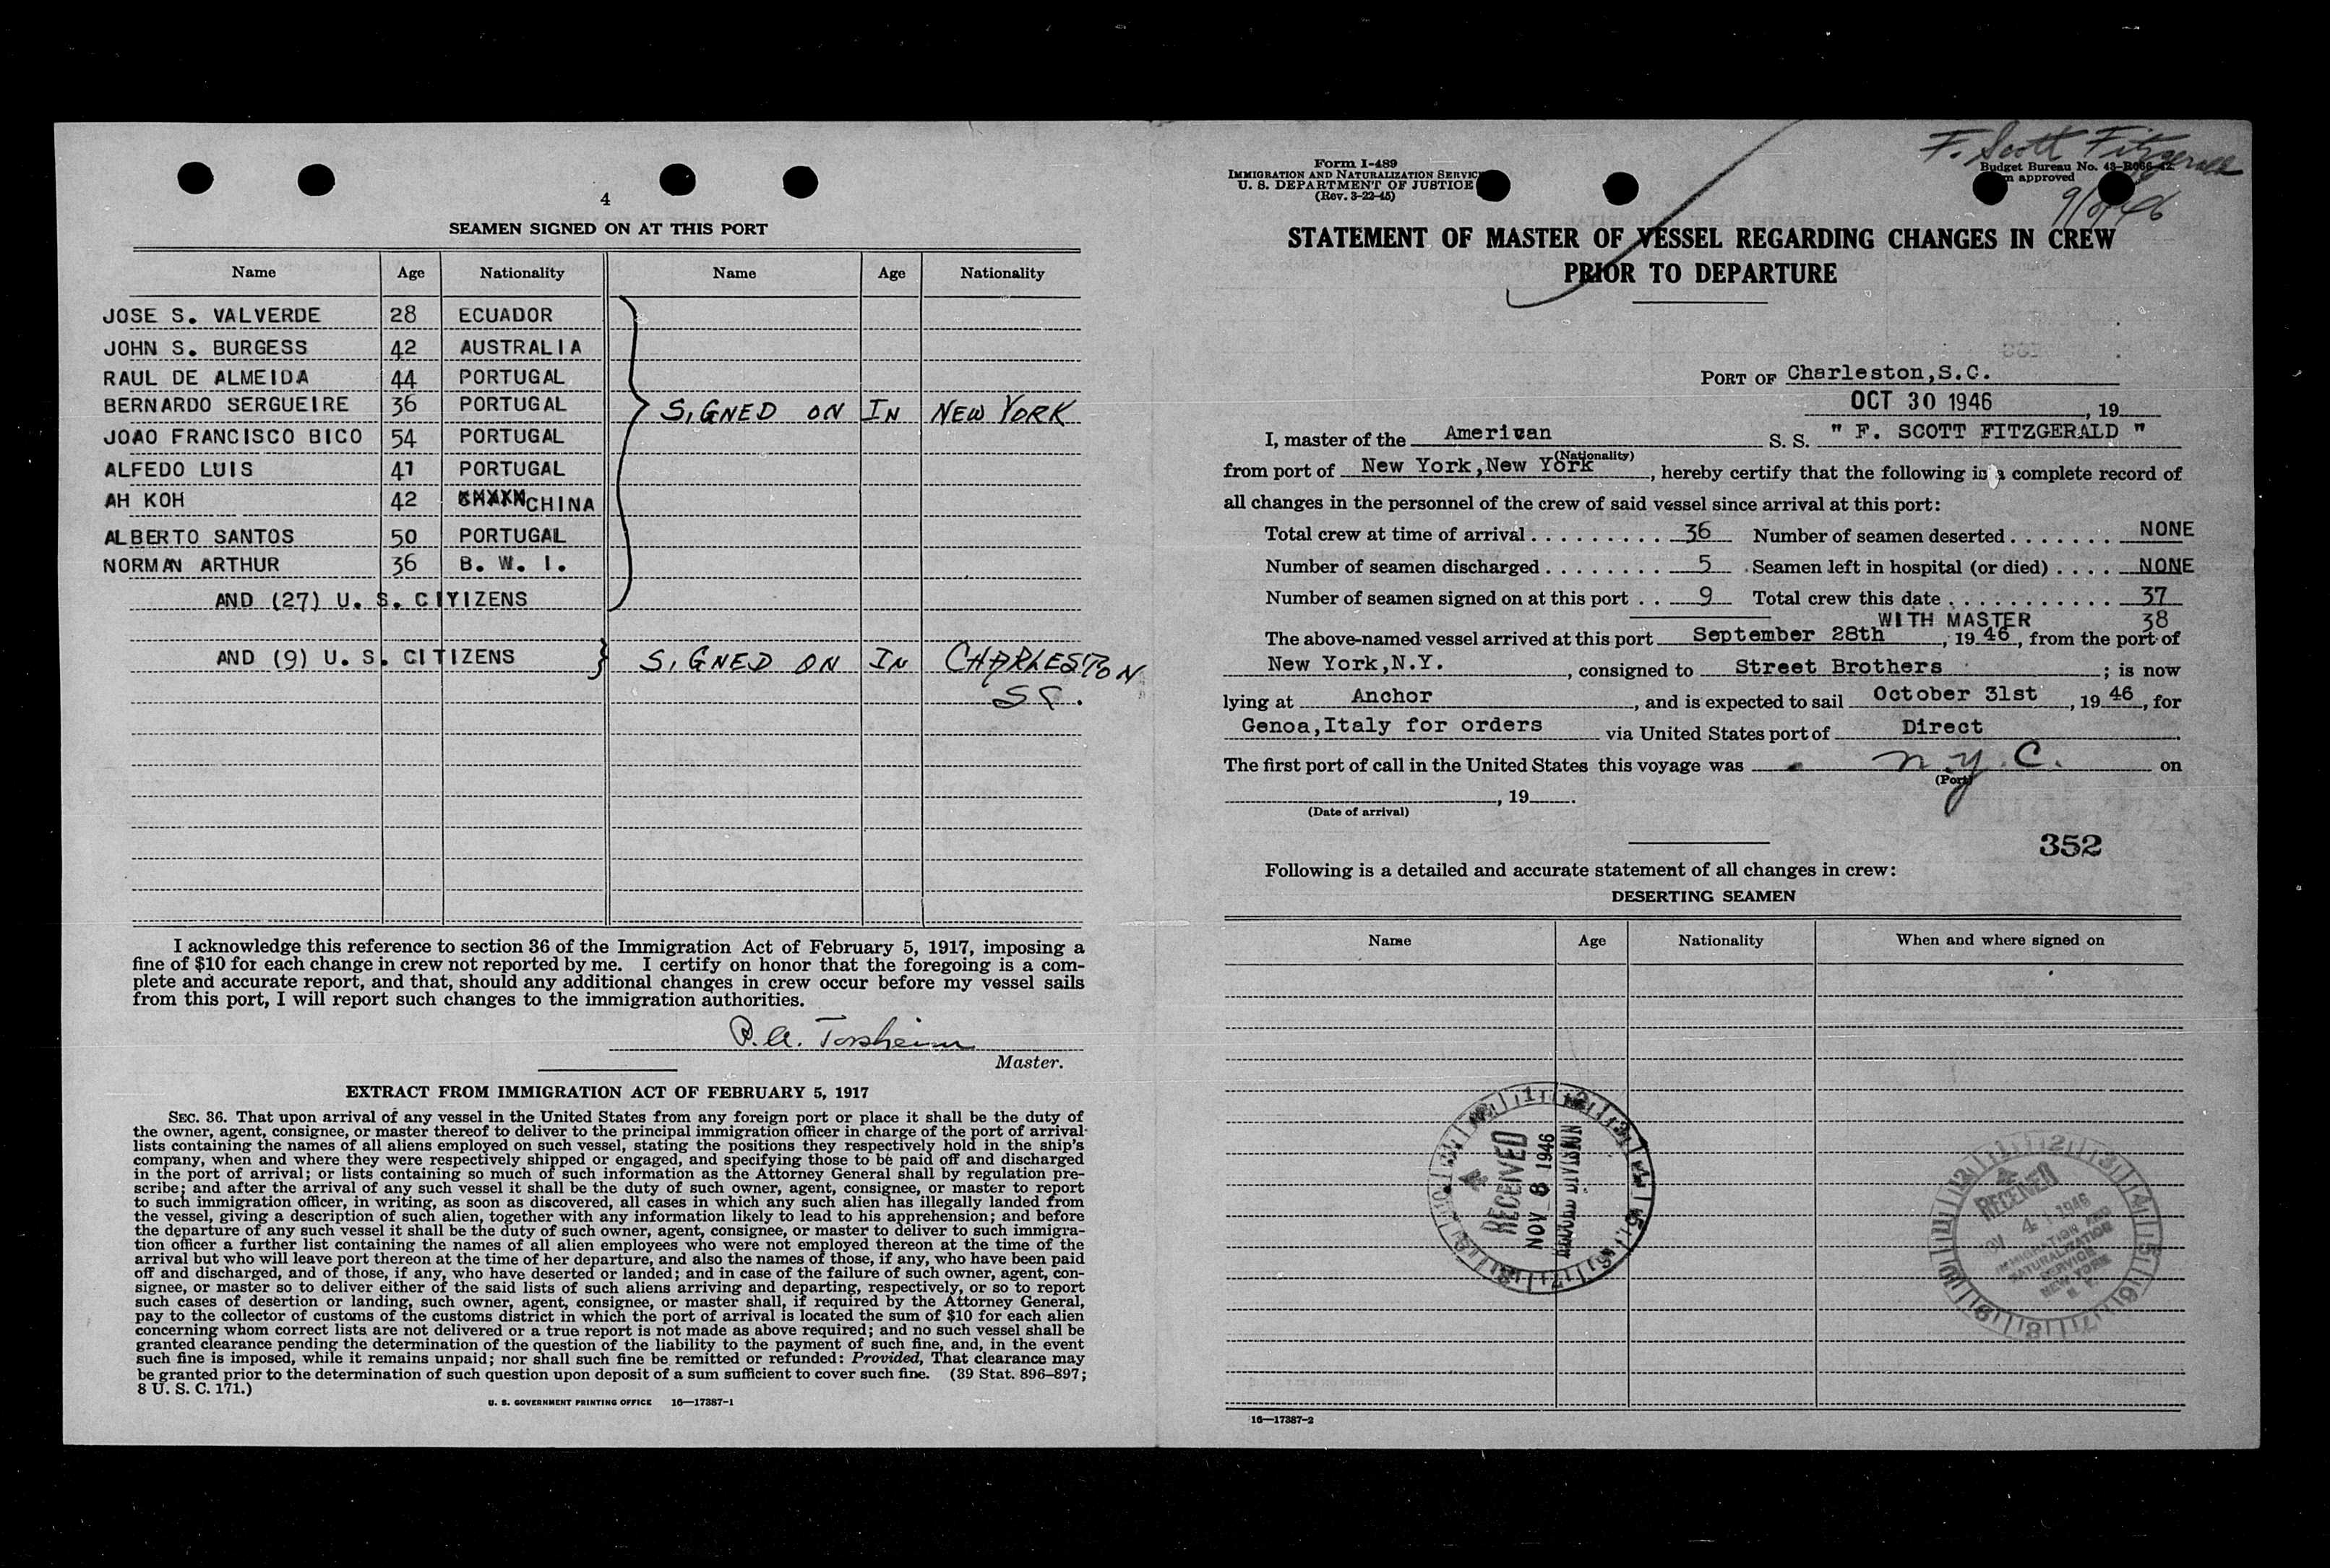 4
SEAMEN SIGNED ON AT THIS PORT
Name Age Nationality Name Age Nationality
JOSE S. VALVERDE 28 ECUADOR
JOHN S. BURGESS 42 AUSTRALIA
RAUL DE ALMEIDA 44 PORTUGAL
BERNARDO SERGUEIRE 36 PORTUGAL SIGNED ON IN NEW YORK
JOAO FRANCISCO BICO 54 PORTUGAL
ALFEDO LUIS 41 PORTUGAL
AH KOH 42 CHINA
ALBERTO SANTOS 50 PORTUGAL
NORMAN ARTHUR 36 B. W. I.
AND (27) U. S. CITIZENS
AND (9) U. S. CITIZENS SIGNED ON IN CHARLESTON
SC.
I acknowledge this reference to section 36 of the Immigration Act of February 5, 1917, imposing a
fine of $10 for each change in crew not reported by me. I certify on honor that the foregoing is a com-
plete and accurate report, and that, should any additional changes in crew occur before my vessel sails
from this port, I will report such changes to the immigration authorities.
Torsheim
Master.
EXTRACT FROM IMMIGRATION ACT OF FEBRUARY 5, 1917
SEC. 36. That upon arrival of any vessel in the United States from any foreign port or place it shall be the duty of
the owner, agent, consignee, or master thereof to deliver to the principal immigration officer in charge of the port of arrival
lists containing the names of all aliens employed on such vessel, stating the positions they respectively hold in the ship's
company, when and where they were respectively shipped or engaged, and specifying those to be paid off and discharged
in the port of arrival; or lists containing so much of such information as the Attorney General shall by regulation pre-
scribe; and after the arrival of any such vessel it shall be the duty of such owner, agent, consignee, or master to report
to such immigration officer, in writing, as soon as discovered, all cases in which any such alien has illegally landed from
the vessel, giving a description of such alien, together with any information likely to lead to his apprehension; and before
the departure of any such vessel it shall be the duty of such owner, agent, consignee, or master to deliver to such immigra-
tion officer a further list containing the names of all alien employees who were not employed thereon at the time of the
arrival but who will leave port thereon at the time of her departure, and also the names of those, if any, who have been paid
off and discharged, and of those, if any, who have deserted or landed; and in case of the failure of such owner, agent, con-
signee, or master so to deliver either of the said lists of such aliens arriving and departing, respectively, or so to report
such cases of desertion or landing, such owner, agent, consignee, or master shall, if required by the Attorney General,
pay to the collector of customs of the customs district in which the port of arrival is located the sum of $10 for each alien
concerning whom correct lists are not delivered or a true report is not made as above required; and no such vessel shall be
granted clearance pending the determination of the question of the liability to the payment of such fine, and, in the event
such fine is imposed, while it remains unpaid; nor shall such fine be remitted or refunded: Provided, That clearance may
be granted prior to the determination of such question upon deposit of a sum sufficient to cover such fine. (39 Stat. 896–897;
8 U. S. C. 171.)
U. S. GOVERNMENT PRINTING OFFICE 16—17387-1
F. Scott Fitzgerald
Form I-489
IMMIGRATION AND NATURALIZATION SERVICE
U. S. DEPARTMENT OF JUSTICE
(Rev. 3-22-45)
Budget Bureau No.
approved
STATEMENT OF MASTER OF VESSEL REGARDING CHANGES IN CREW
PRIOR TO DEPARTURE
PORT OF Charleston,S.C.
OCT 30 1946, 19
I, master of the American S. S. " F. SCOTT FITZGERALD "
(Nationality)
from port of New York,New York, hereby certify that the following is a complete record of
all changes in the personnel of the crew of said vessel since arrival at this port:
Total crew at time of arrival . . . . . . . . . . 36 Number of seamen deserted . . . . . . . NONE
Number of seamen discharged . . . . . . . . 5 Seamen left in hospital (or died) . . . . NONE
Number of seamen signed on at this port . . 9 Total crew this date . . . . . . . . . . . 37
WITH MASTER 38
The above-named vessel arrived at this port September 28th, 1946, from the port of
New York,N.Y., consigned to Street Brothers; is now
lying at Anchor, and is expected to sail October 31st, 1946, for
Genoa,Italy for orders via United States port of Direct.
The first port of call in the United States this voyage was N.Y.C. on
(Port)
, 19.
(Date of arrival)
352
Following is a detailed and accurate statement of all changes in crew:
DESERTING SEAMEN
Name Age Nationality When and where signed on
RECEIVED
NOV 8 1946
RECEIVED
4 1946
IMMIGRATION AND
NATURALIZATION
SERVICE
NEW YORK
N. Y.
16—17387-2